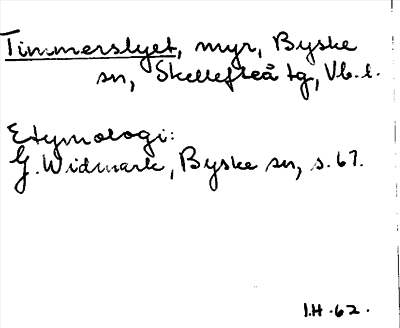 Timmerslyet, myr, Byske
sn, Skellefteå tg, Vb. l.
Etymologi:
G. Widmark, Byske sn, s. 67.
I.H. 62.